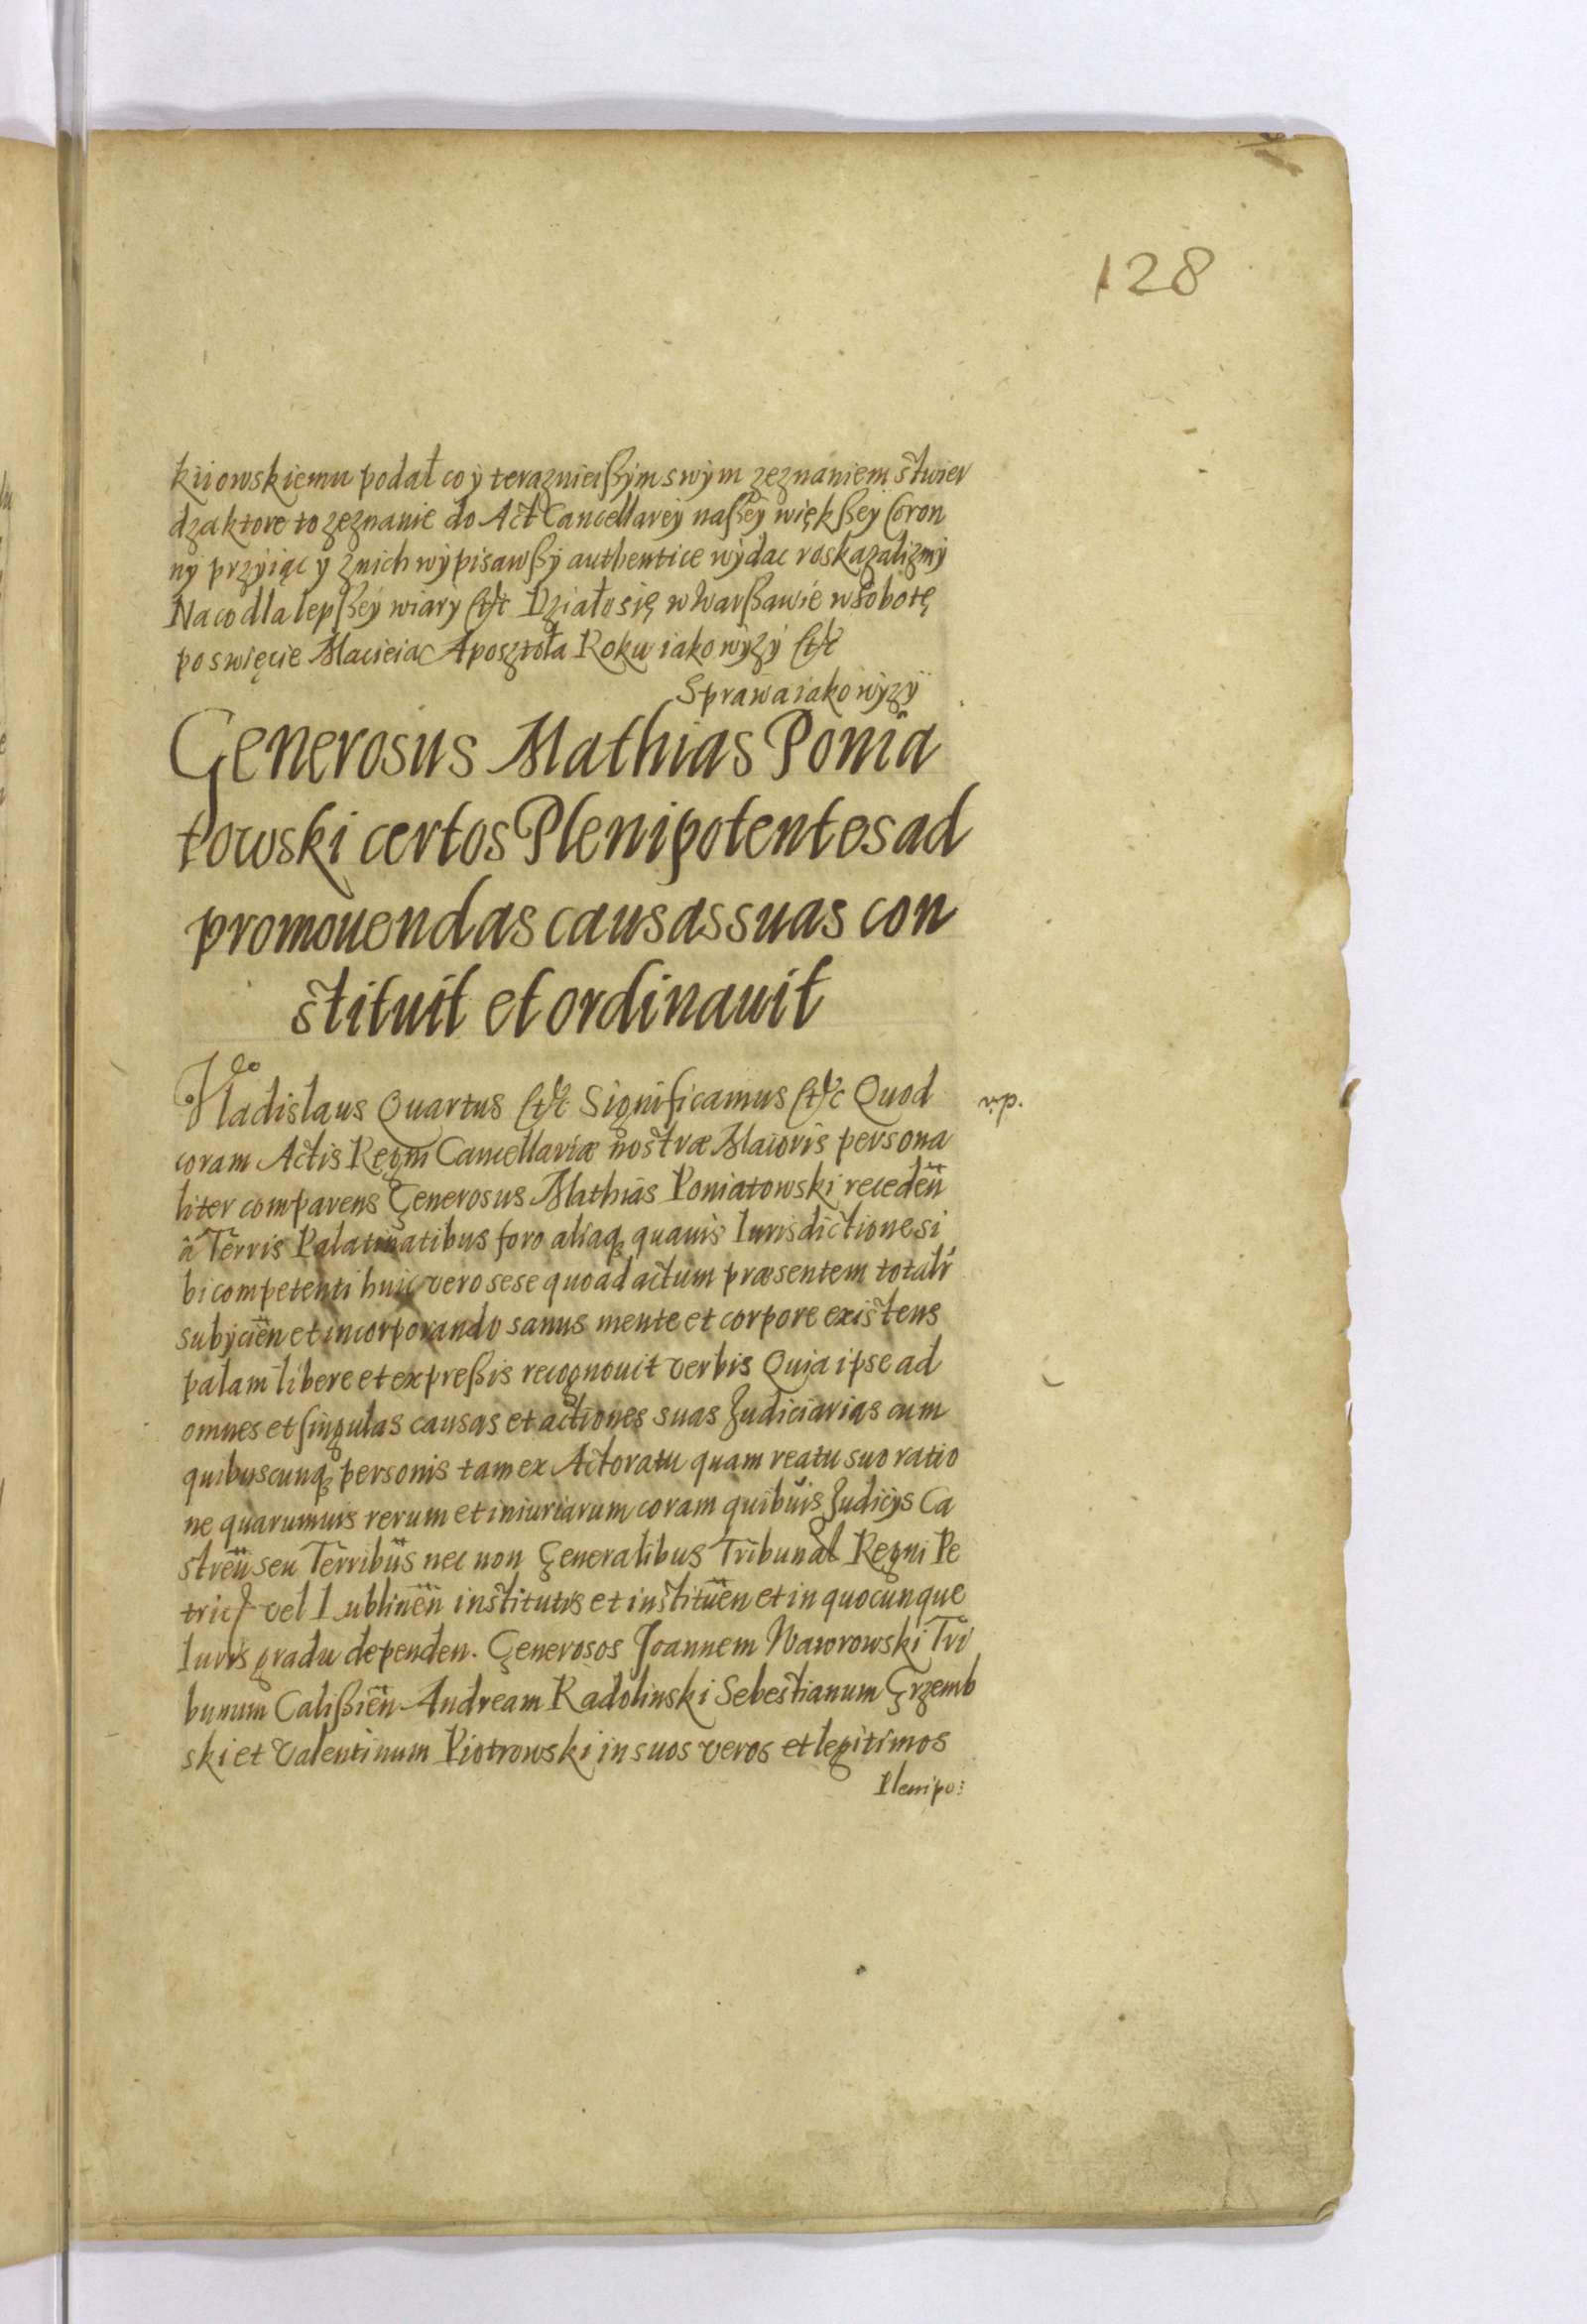 128
kiiowskiemu podał co ÿ teraznieißÿm swÿm zeznaniem stwier
dza ktore to zeznanie do Act Cancellarÿÿ naßeÿ więkßeÿ Coron
nÿ przyiąc ÿ znich wÿpisawßÿ authentice wÿdac roskazalizmÿ
Na co dla lepßeÿ wiarÿ &c Działo się w Warßawie w Sobotę
po swięcie Macieia Aposztoła Roku iako wÿzÿ &c
Sprawa iako wÿzÿ
Generosus Mathias Ponia
towski certos Plenipotentes ad
promouendas causas suas con
stituit et ordinauit
Vladislaus Quartus &c Significamus &c Quod
np.
coram Actis Regni Cancellariæ nostræ Maioris persona
liter comparens Generosus Mathias Poniatowski receden̈
à Terris Palatinatibus foro aliaq; quauis Iurisdictione si
bi competenti huic vero sese quoad actum præsentem totalr
subÿcien̈ et incorporando sanus mente et corpore existens
palam libere et expreßis recognouit verbis Quia ipse ad
omnes et singulas causas et actiones suas Judiciarias cum
quibuscunq; personis tam ex Actoratu quam reatu suo ratio
ne quarumuis rerum et iniuriarum coram quibusuis Judicÿs Ca
stren̈ seu Terribus nec non Generalibus Tribunal Regni Pe
tric vel Lublinen̈ institutis et institüen et in quocunque
Iuris gradu dependen. Generosos Joannem Naworowski Tri
bunum Calißien̈ Andream Radolinski Sebestianum Grzemb
ski et Valentinum Piotrowski in suos veros et legitimos
Plenipo: